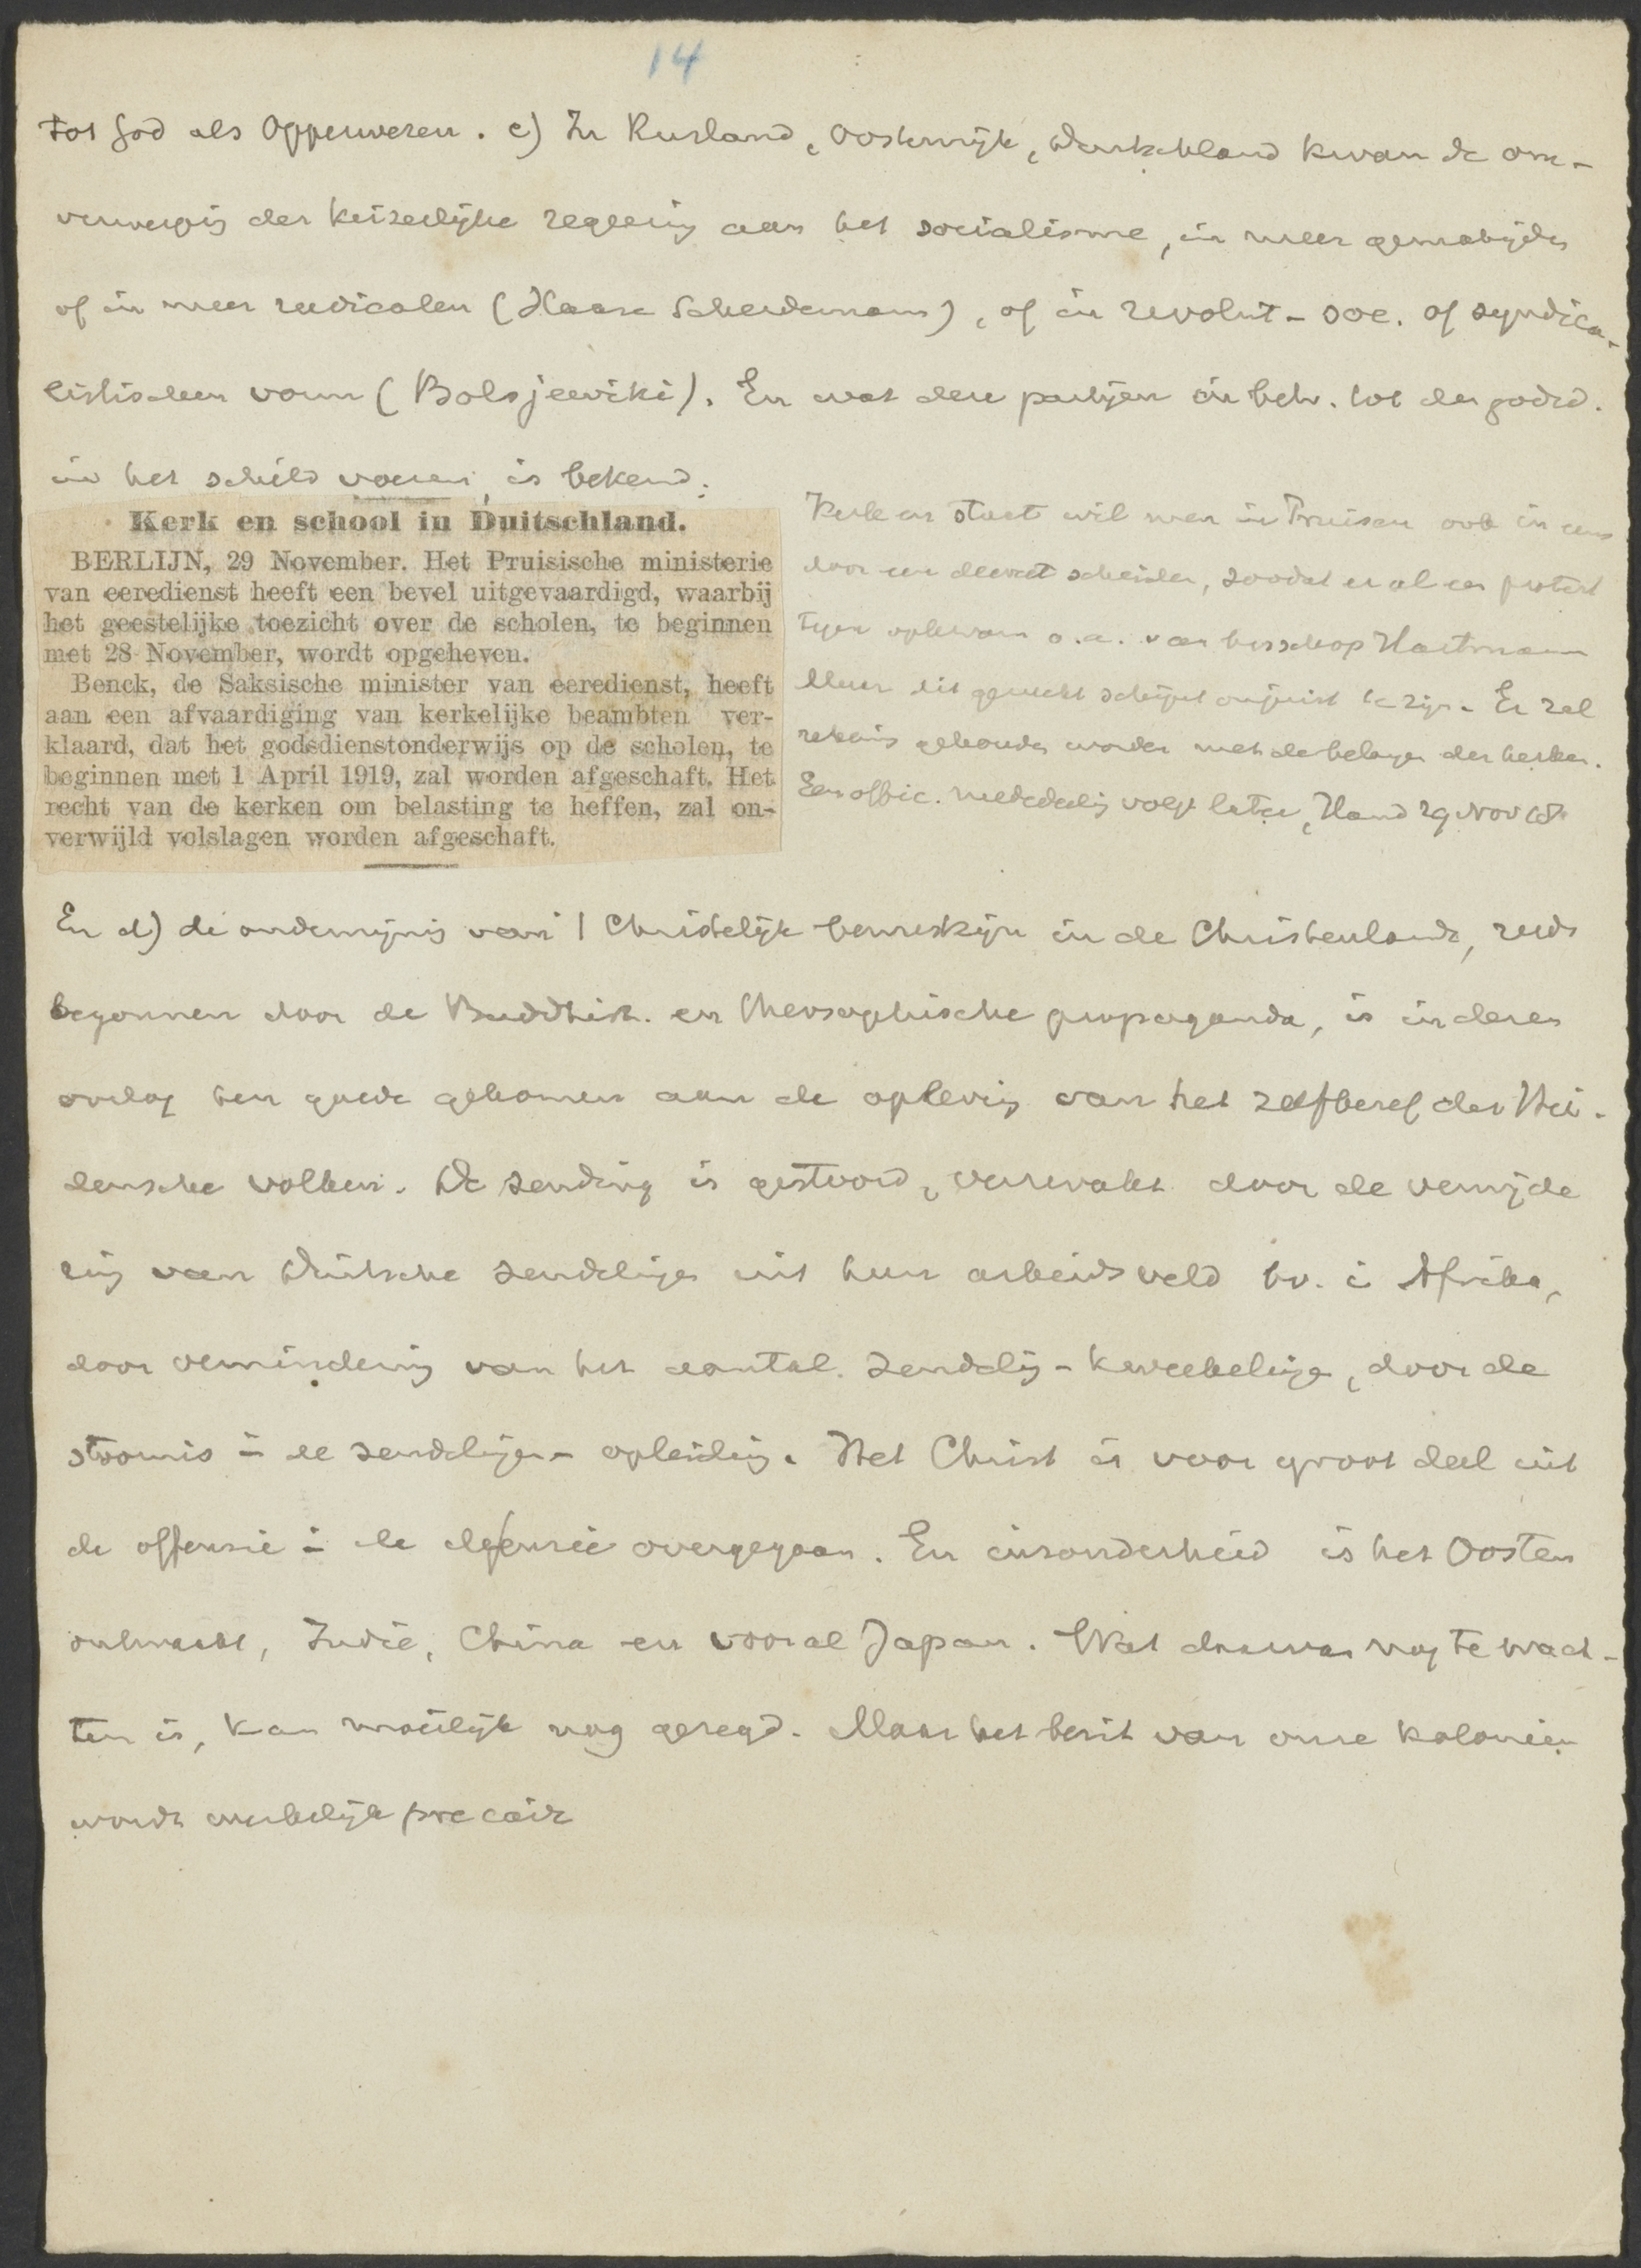 14
tot God als Opperwezen. c) In Rusland, Oostenrijk, Duitschland kwam de om-
verwerping der keizerlijke regeering aan het socialisme, in meer gematigden
of in meer radicalen (Haase Scheidemann), of in revolut- soc. of syndica-
listischen vorm (Bolsjeewiki). En wat deze partijen in betr. tot den godsd.
in het schild voeren, is bekend.
Kerk en school in Duitschland.
BERLIJN, 29 November. Het Pruisische ministerie
van eeredienst heeft een bevel uitgevaardigd, waarbij
het geestelijke toezicht over de scholen, te beginnen
met 28 November, wordt opgeheven.
Benck, de Saksische minister van eeredienst, heeft
aan een afvaardiging van kerkelijke beambten ver-
klaard, dat het godsdienstonderwijs op de scholen, te
beginnen met 1 April 1919, zal worden afgeschaft. Het
recht van de kerken om belasting te heffen, zal on-
verwijld volslagen worden afgeschaft.
Kerk en staat wil men in Pruisen ook in eens
door een decreet scheiden, zoodat er al een protest
tegen opkwam o.a. van bisschop Hartmann
Maar dit gerucht schijnt onjuist te zijn. Er zal
rekening gehouden worden met de belangen der kerken.
Een offic. mededeeling volgt later, Hand 29 Nov 18.
En d) de ondermijning van 't Christelijk bewustzijn in de Christenlanden, reeds
begonnen door de Buddhist. en Theosophische propaganda, is in dezen
oorlog ten goede gekomen aan de opleving van het zelfbesef der Hei-
densche volken. De zending is gestoord, verzwakt door de verwijde
ring van Duitsche zendelingen uit hun arbeidsveld bv. in Afrika,
door vermindering van het aantal zendeling-kweekelingen, door de
stoornis in de zendelingen-opleiding. Het Christ is voor groot deel uit
de offensie in de defensie overgegaan. En inzonderheid is het Oosten
ontwaakt, Indië, China en vooral Japan. Wat daarvan nog te wach-
ten is, kan moeilijk nog gezegd. Maar het bezit van onze koloniën
wordt merkelijk precair